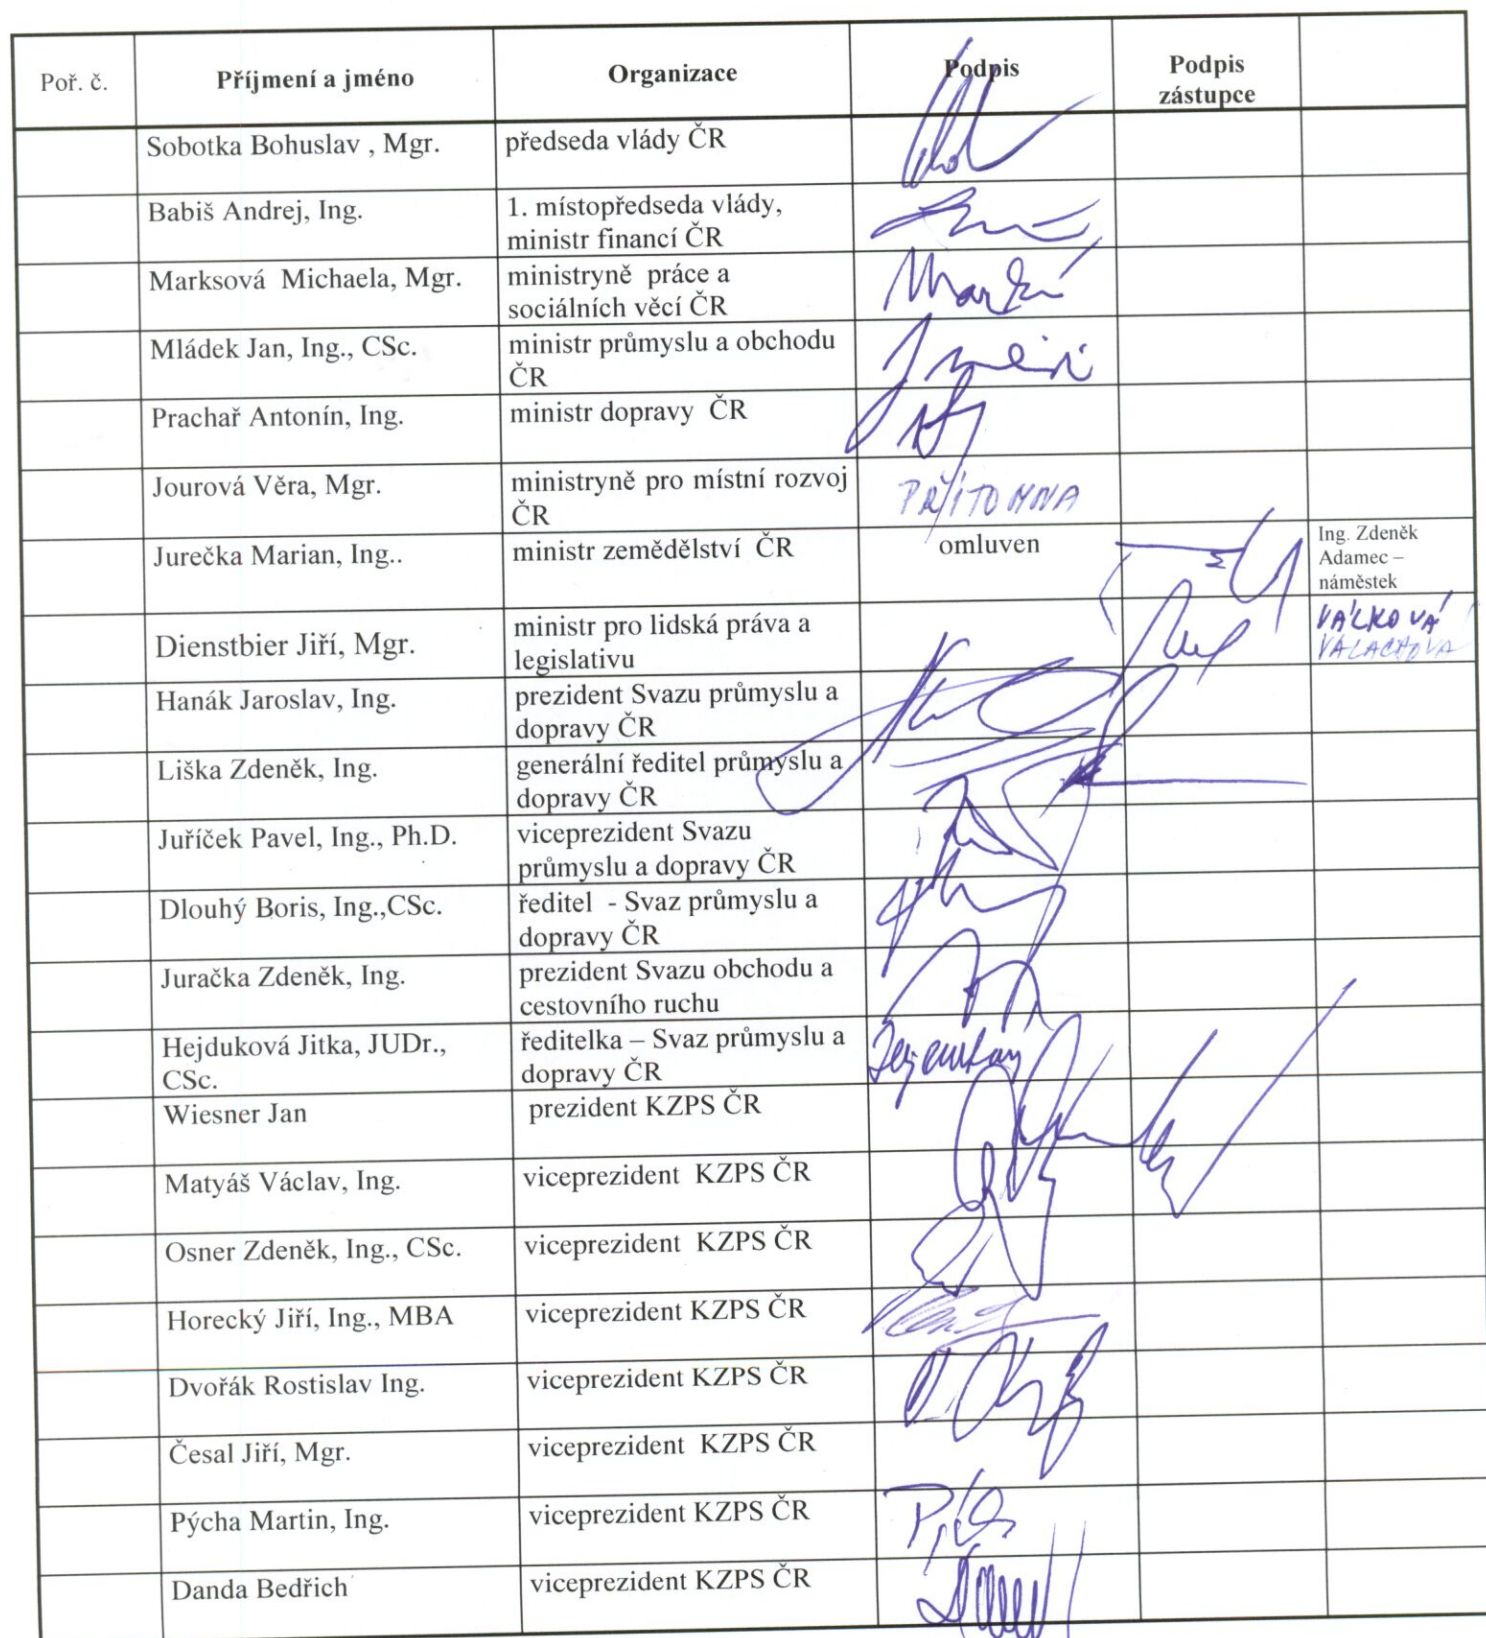 Poř. č. Příjmení a jméno Organizace Podpis Podpis
zástupce
Sobotka Bohuslav , Mgr. předseda vlády ČR
Babiš Andrej, Ing. 1. místopředseda vlády,
ministr financí ČR
Marksová Michaela, Mgr. ministryně práce a
sociálních věcí ČR
Mládek Jan, Ing., CSc. ministr průmyslu a obchodu
ČR
Prachař Antonín, Ing. ministr dopravy ČR
Jourová Věra, Mgr. ministryně pro místní rozvoj
ČR
PŘÍTOMNA
Jurečka Marian, Ing.. ministr zemědělství ČR omluven
Ing. Zdeněk
Adamec –
náměstek
Dienstbier Jiří, Mgr. ministr pro lidská práva a
legislativu
VÁLKOVÁ
VALACHOVÁ
Hanák Jaroslav, Ing. prezident Svazu průmyslu a
dopravy ČR
Liška Zdeněk, Ing. generální ředitel průmyslu a
dopravy ČR
Juříček Pavel, Ing., Ph.D. viceprezident Svazu
průmyslu a dopravy ČR
Dlouhý Boris, Ing.,CSc. ředitel - Svaz průmyslu a
dopravy ČR
Juračka Zdeněk, Ing. prezident Svazu obchodu a
cestovního ruchu
Hejduková Jitka, JUDr., ředitelka – Svaz průmyslu a
CSc. dopravy ČR
Wiesner Jan prezident KZPS ČR
Matyáš Václav, Ing. viceprezident KZPS ČR
Osner Zdeněk, Ing., CSc. viceprezident KZPS ČR
Horecký Jiří, Ing., MBA viceprezident KZPS ČR
Dvořák Rostislav Ing. viceprezident KZPS ČR
Česal Jiří, Mgr. viceprezident KZPS ČR
Pýcha Martin, Ing. viceprezident KZPS ČR
Danda Bedřich viceprezident KZPS ČR